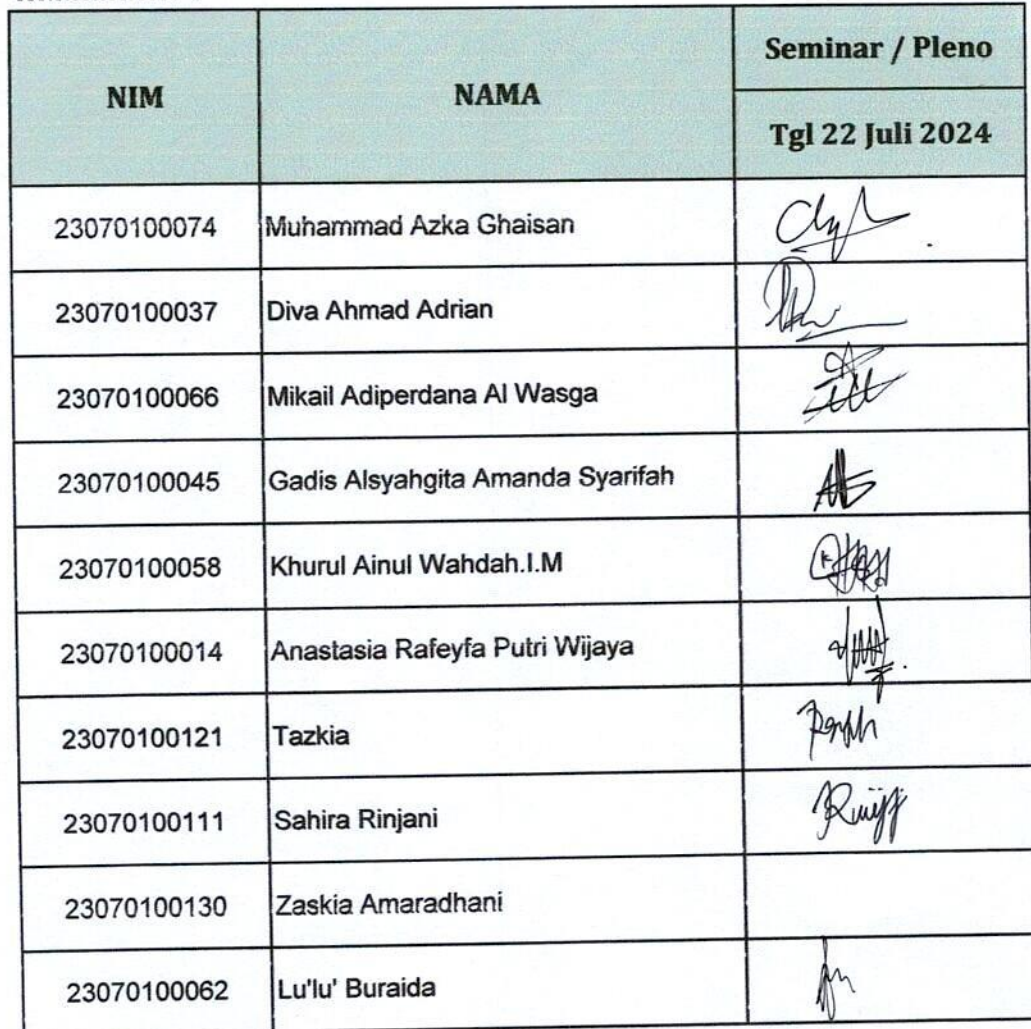 NIM NAMA Seminar / Pleno
Tgl 22 Juli 2024
23070100074 Muhammad Azka Ghaisan
23070100037 Diva Ahmad Adrian
23070100066 Mikail Adiperdana Al Wasga
23070100045 Gadis Alsyahgita Amanda Syarifah
23070100058 Khurul Ainul Wahdah.I.M
23070100014 Anastasia Rafeyfa Putri Wijaya
23070100121 Tazkia
23070100111 Sahira Rinjani
23070100130 Zaskia Amaradhani
23070100062 Lu'lu' Buraida